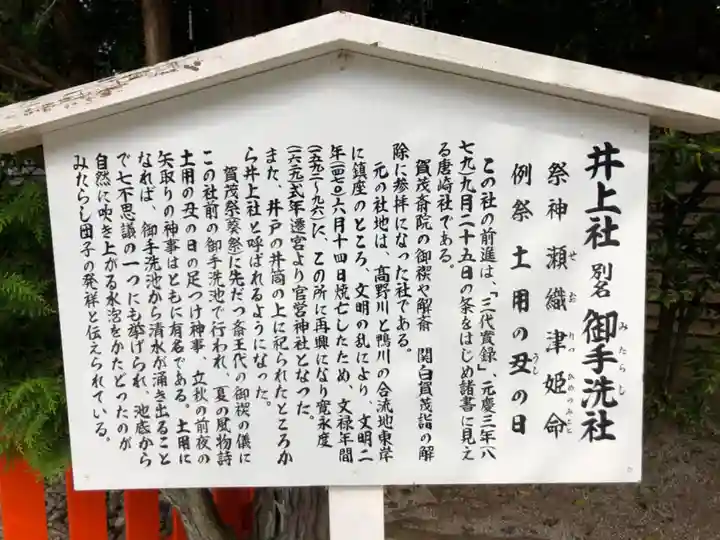 井上社 別名 御手洗社
みたらし
祭神 瀬織津姫命
せおりつひめのみこと
例祭 土用の丑の日
うし
この社の前進は、「三代實録」、元慶三年(八
七九)九月二十五日の条をはじめ諸書に見え
る唐崎社である。
賀茂斎院の御禊や解斎 関白賀茂詣の解
除に参拝になった社である。
元の社地は、高野川と鴨川の合流地東岸
に鎮座のところ、文明の乱により、文明二
年(一四七〇)六月十四日焼亡したため、文禄年間
(一五九二〜九六)に、この所に再興になり寛永度
(一六二九)式年遷宮より官営神社となった。
また、井戸の井筒の上に祀られたところか
ら井上社と呼ばれるようになった。
賀茂祭(葵祭)に先だつ斎王代の御禊の儀に
この社前の御手洗池で行われ、夏の風物詩
土用の丑の日の足つけ神事、立秋の前夜の
矢取りの神事はともに有名である。土用に
なれば、御手洗池から清水が湧き出ること
で七不思議の一つにも挙げられ、池底から
自然に吹き上がる水泡をかたどったのが
みたらし団子の発祥と伝えられている。